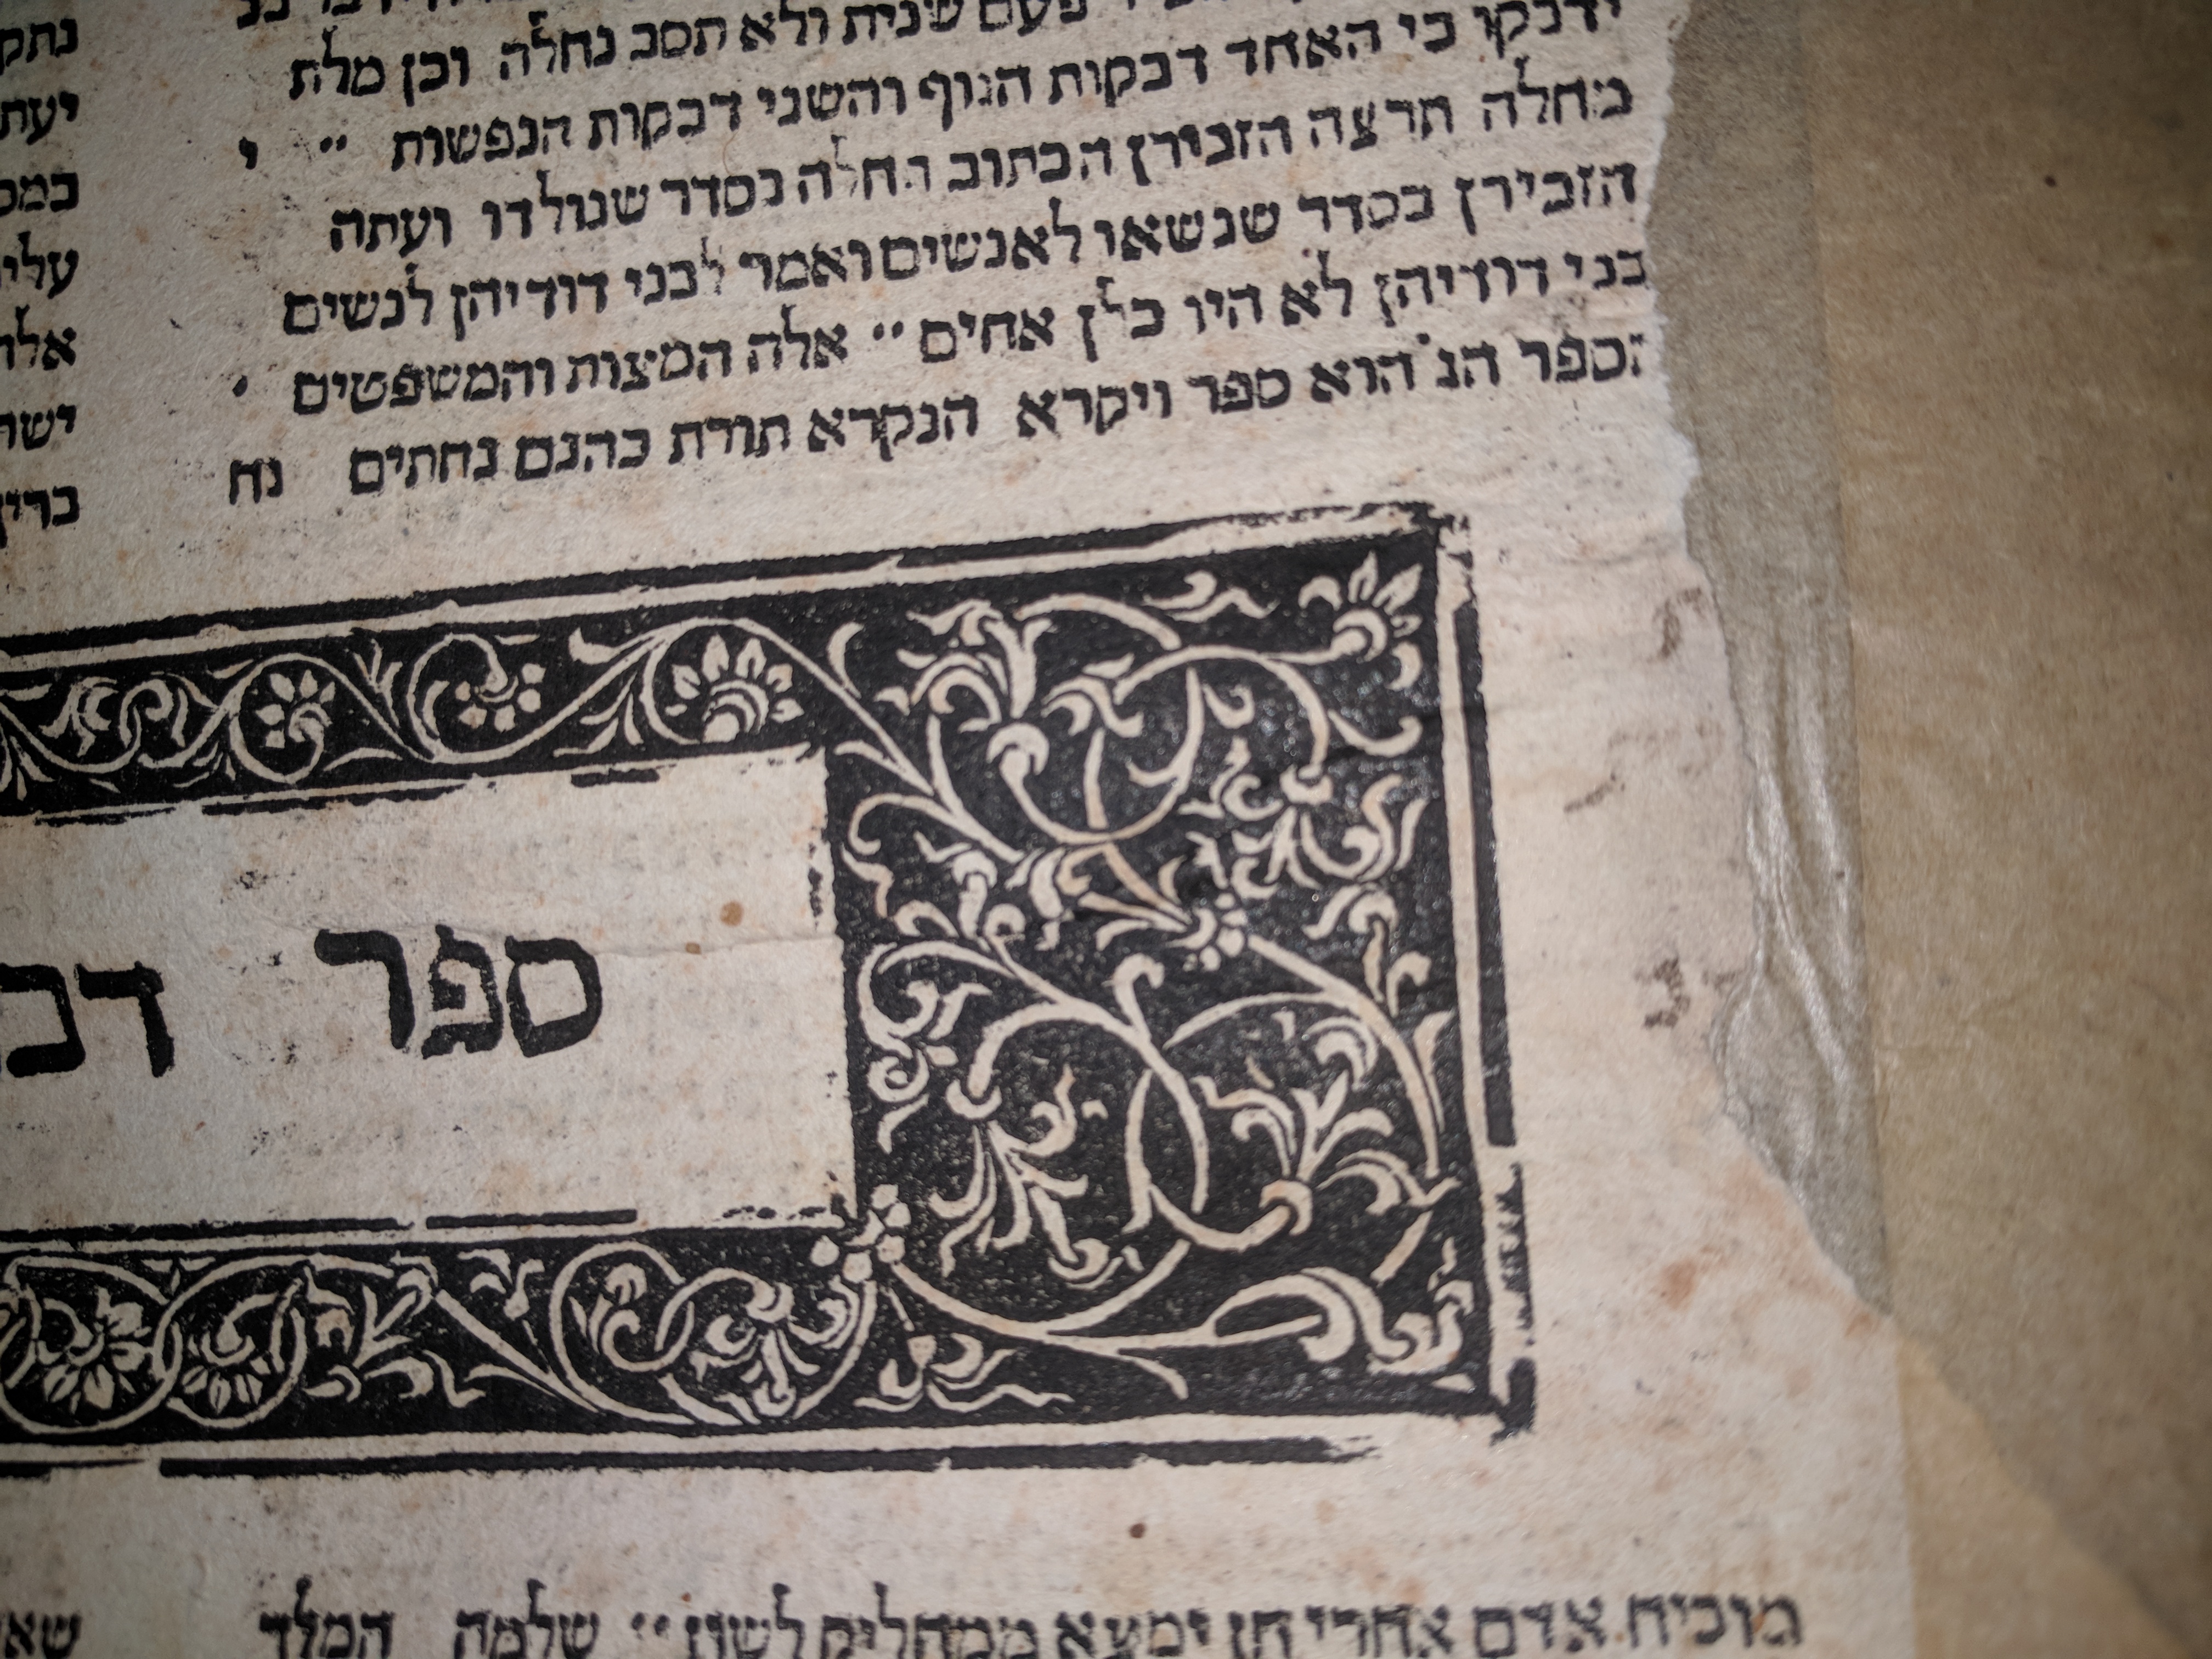 פעם שנית ולא תסב נחלה וכן מלת
ידבקו כי האחד דבקות הגוף והשני דבקות הנפשות י
מחלה תרצה הזכירן הכתוב וחלה כסדר שנולדו ועתה
הזכירן כסדר שנשאו לאנשים ואמר לבני דודיהן לנשים
בני דודיהן לא היו כלן אחים אלה המצות והמשפטים
הספר הנ' הוא ספר ויקרא הנקרא תורת כהנם נחתים נח
נתק
יעת
במכ
עלי
אלו
ישר
כרין
ספר דב
מוכיח אדם אחרי חן ימצא ממחליק לשון שלמה המלך
שא